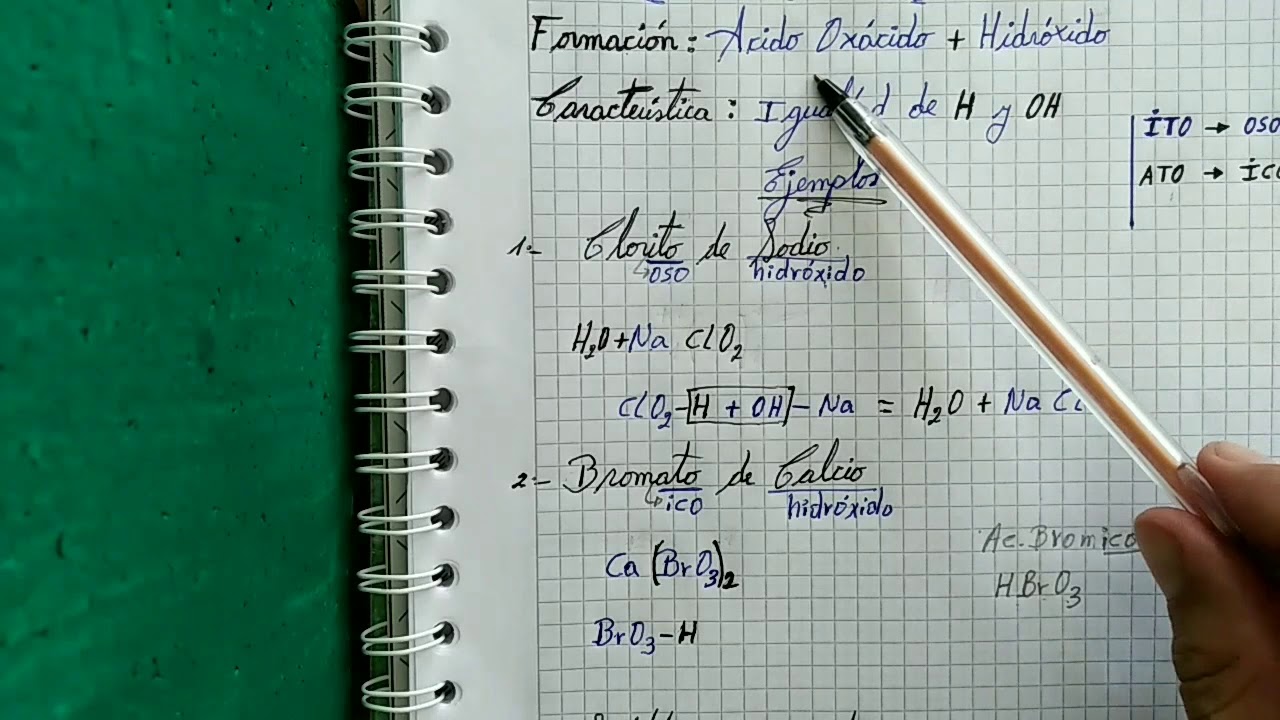 Formación: Acido Oxácido + Hidróxido
Característica: Igualdad de H y OH
ITO → OSO
ATO → ICO
Ejemplos
1.- Clorito de Sodio
oso hidróxido
H₂O+Na ClO₂
ClO₂-H + OH-Na = H₂O + Na Cl
2.- Bromato de Calcio
ico hidróxido
Ca (BrO₃)₂
Ac. Bromico
HBrO₃
BrO₃-H